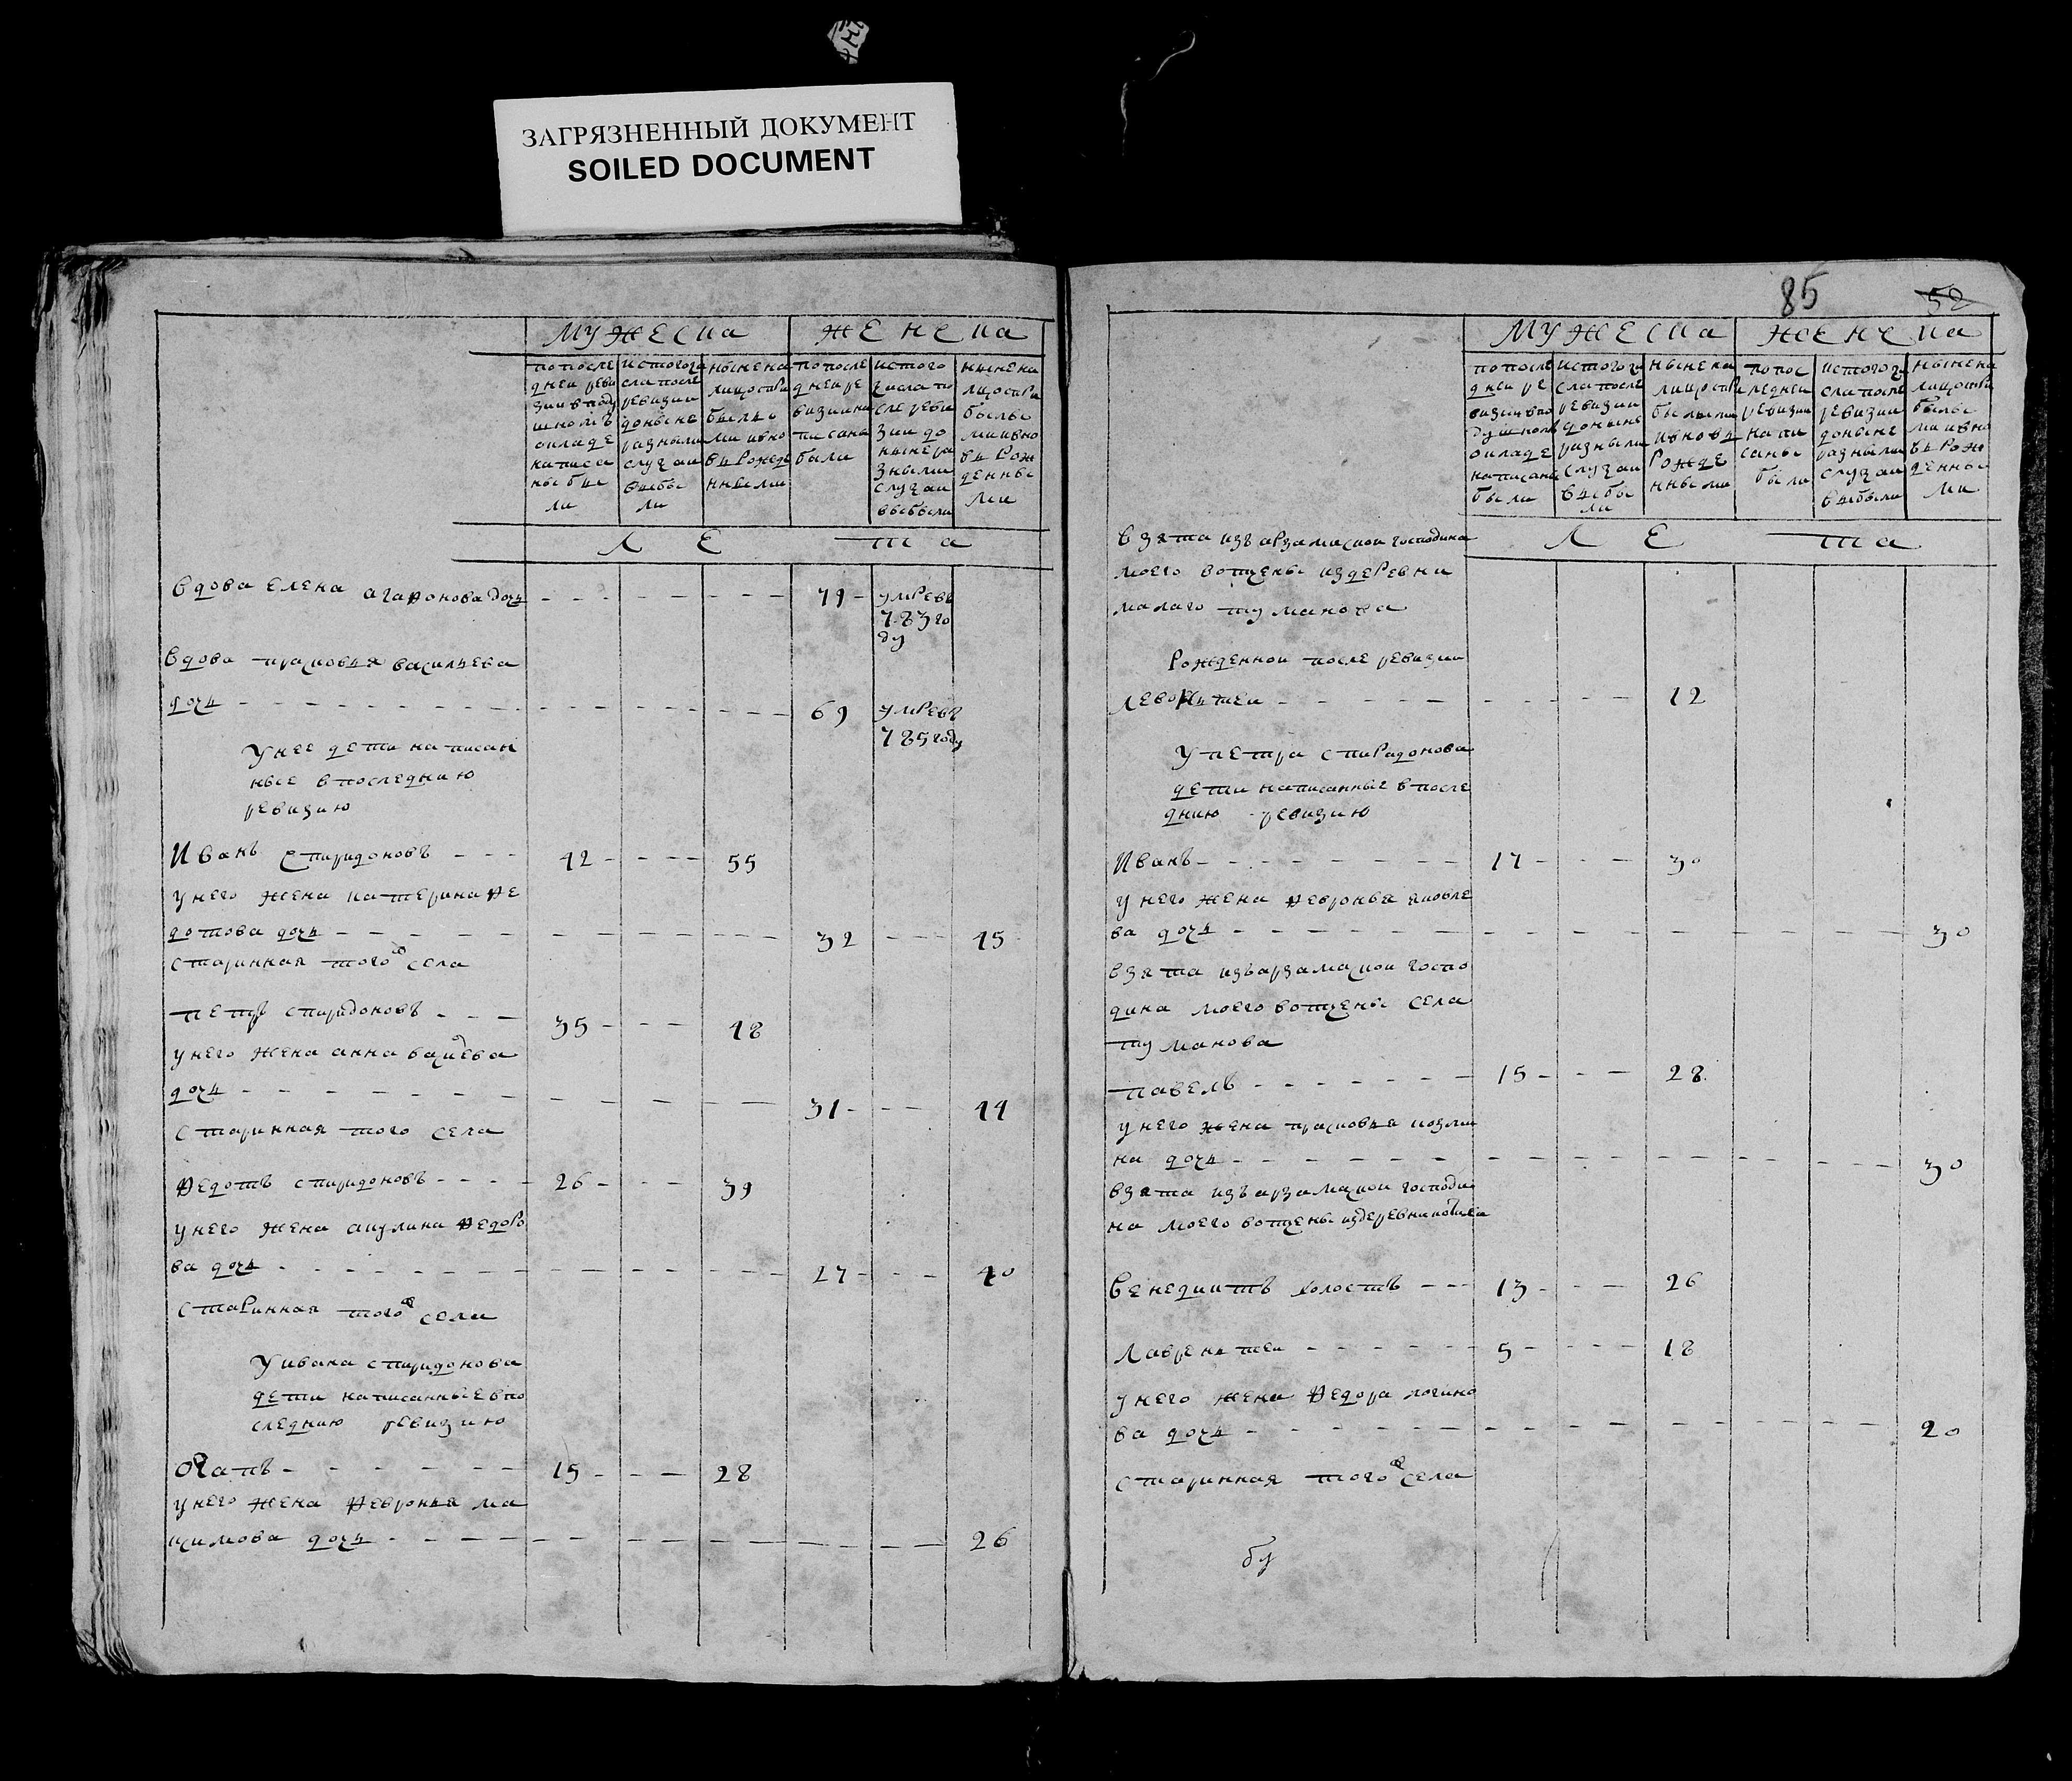 ЗАГРЯЗНЕННЫЙ ДОКУМЕНТ
SOILED DOCUMENT
мужеска женска
попосле
дней реви
зии вподу
шномъ
окладе
написа
ны бы
ли
истогочи
сла после
ревизии
доныне
разными
случаи
выбы
ли
ныне на
лицо при
были
ми и вно
въ рожде
нными
попосле
дней ре
визии на
писаны
были
истого
числа по
сле реви
зии до
ныне ра
зными
случаи
выбыли
ныне на
лицо при
былы
ми и вно
въ рож
денны
ми
лета
вдова елена агафонова дочь - - - 79 - умре въ
783 го
ду
вдова прасковья васильева
дочь - - - 69 умре въ
785 году
у нее дети написан
ные в последнию
ревизию
Иванъ спиридоновъ - - - 42 - - - 55
у него жена катерина фе
дотова дочь - - - 32 - - - 45
старинная того села
петръ спиридоновъ - - - 35 - - - 48
у него жена анна васильева
дочь - - - 31 - - - 44
старинная того села
федотъ спиридоновъ - - - 26 - - - 39
у него жена акулина федоро
ва дочь - - - 27 - - - 40
старинная того села
у ивана спиридонова
дети написанные в по
следнию ревизию
- - - 15 - - - 28
у него жена февронья ма
ксимова дочь - - - 26
85 52
мужеска женска
попосле
дней ре
визии впо
душном
окладе
написаны
были
истого чи
сла после
ревизии
доныне
разными
случаи
выбы
ли
ныне на
лицо при
былыми
и вновь
рожде
нными
попос
ледней
ревизии
напи
саны
были
истого чи
сла после
ревизии
доныне
разными
случаи
выбыли
ныне на
лицо при
былы
ми и вно
въ рож
денны
ми
лета
взята изъ арзамаской господина
моего вотчены из деревни
малаго туманова
Рожденной после ревизии
левонтей - - - 12
у петра спиридонова
дети написанные в после
днию ревизию
Иванъ - - - 17 - - - 30
у него жена февронья яковле
ва дочь - - - 30
взята изъ арзамаской госпо
дина моего вотчены села
туманова
павелъ - - - 15 - - - 28
у него жена прасковья козми
на дочь - - - 30
взята изъ арзамаской господи
на моего вотчены из деревни
венедиктъ холостъ - - - 13 - - - 26
Лаврентей - - - 5 - - - 18
у него жена федора логино
ва дочь - - - 20
старинная того села